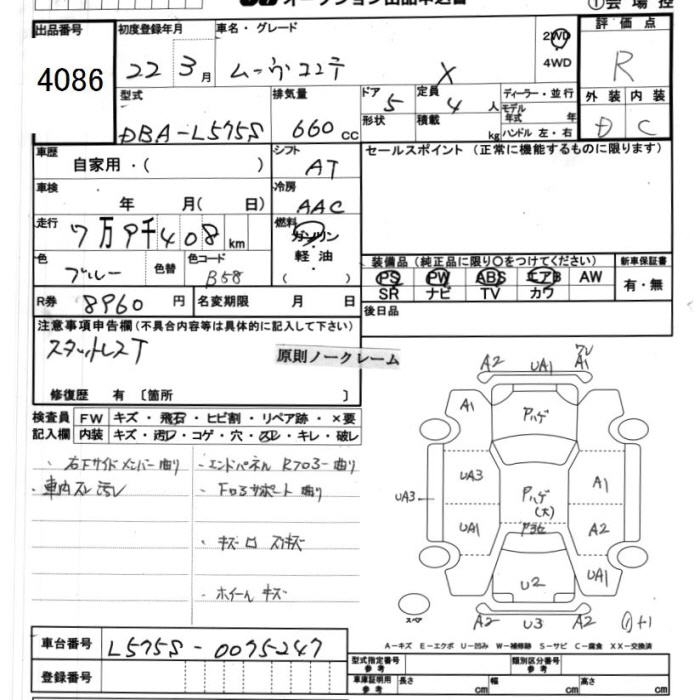 オークション出品申込書
①会場控
出品番号
4086
初度登録年月
22年 3月
車名・グレード
ムーヴコンテ X
2WD
4WD
評価点
R
外装 内装
D C
型式
DBA-L575S
排気量
660cc
ドア
5
形状
定員
4人
積載
kg
ディーラー・並行
モデル年式 年
ハンドル 左・右
車歴
自家用・( )
シフト
AT
セールスポイント (正常に機能するものに限ります)
車検
年 月( 日)
冷房
AAC
走行
7万9千408km
燃料
ガソリン
軽油
( )
色
ブルー
色替
色コード
B58
装備品 (純正品に限り○をつけてください)
PS PW ABS エアB AW
SR ナビ TV カワ
新車保証書
有・無
R券 8960円
名変期限 月 日
後日品
注意事項申告欄(不具合内容等は具体的に記入して下さい)
スタットレスT
原則ノークレーム
修復歴 有 〔箇所 〕
検査員記入欄
FW キズ・飛石・ヒビ割・リペア跡・×要
内装 キズ・汚レ・コゲ・穴・スレ・キレ・破レ
・右下サイドメンバー曲り
・車内スレ汚レ
・エンドパネル Rフロアー曲り
・Fロアサポート曲り
・キズ凹 スリキズ
・ホイールキズ
A2 UA1 A1
A1 Pハゲ
UA3 UA3 Pハゲ A1
(大)
UA1 A2
U2 UA1
スペア
A2 U3 A2
車台番号 L575S-0075247
登録番号
A-キズ E-エクボ U-凹み W-補修跡 S-サビ C-腐食 XX-交換済
型式指定番号 参考
類別区分番号 参考
車庫証明用 参考
長さ cm
幅 cm
高さ cm